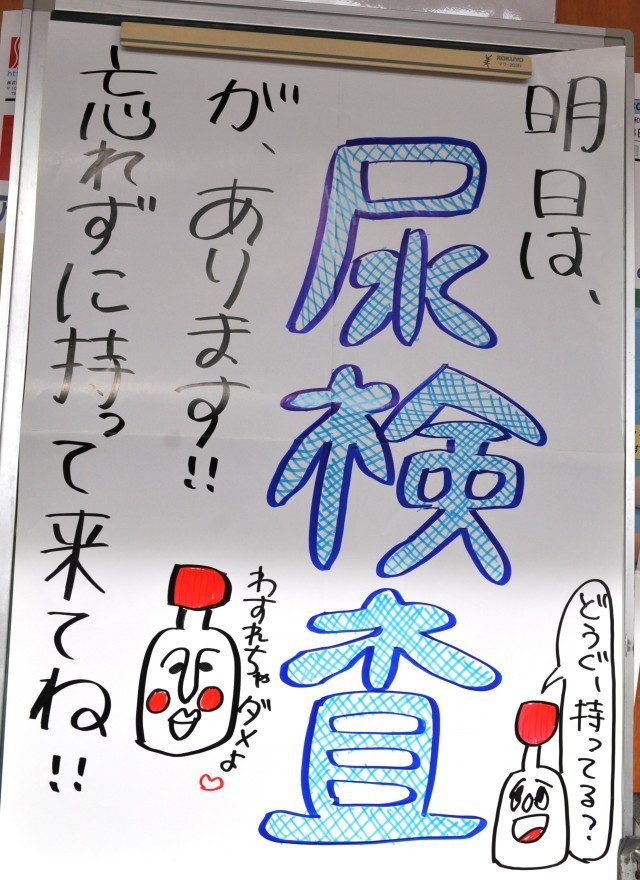 明日は、
尿検査
が、あります!!
忘れずに持って来てね!!
わすれちゃダメよ♡
どうぐー持ってる?
KOKUYO